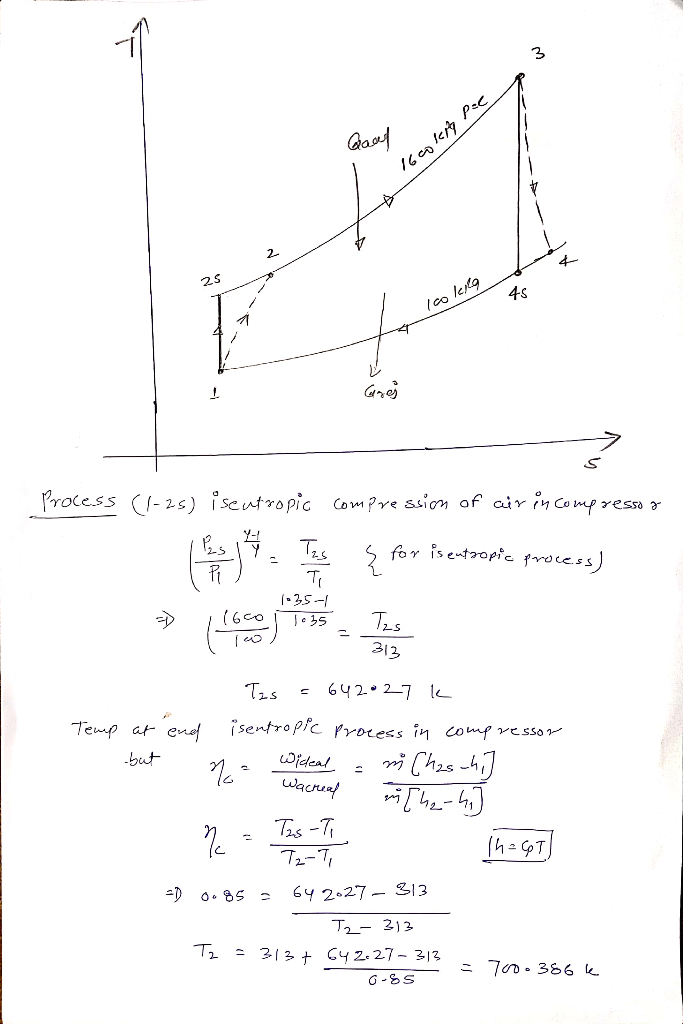 T
3
Qadd
1600 kPa P=C
2
2s
100 kPa
4
4s
1
Qrej
S
Process (1-2s) isentropic compression of air in compressor
(P2s/P1)^(γ-1/γ) = T2s/T1 { for isentropic process}
⇒ (1600/100)^(1.35-1/1.35) = T2s/313
T2s = 642.27 k
Temp at end isentropic process in compressor
but ηc = Wideal/Wactual = ṁ[h2s-h1]/ṁ[h2-h1]
ηc = T2s-T1/T2-T1 [h=CpT]
⇒ 0.85 = 642.27-313/T2-313
T2 = 313 + 642.27-313/0.85 = 700.386 k